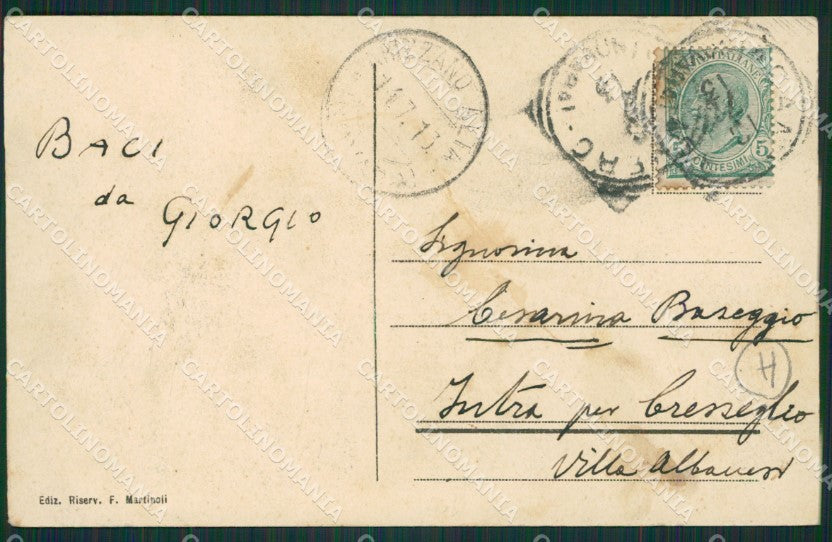 BACI
da
GIORGIO
Signorina
Cesarina Baseggio
Intra per Cresseglio
Villa Albanesi
H
Ediz. Riserv. F. Martinoli
CENTESIMI 5
CARTOLINOMANIA